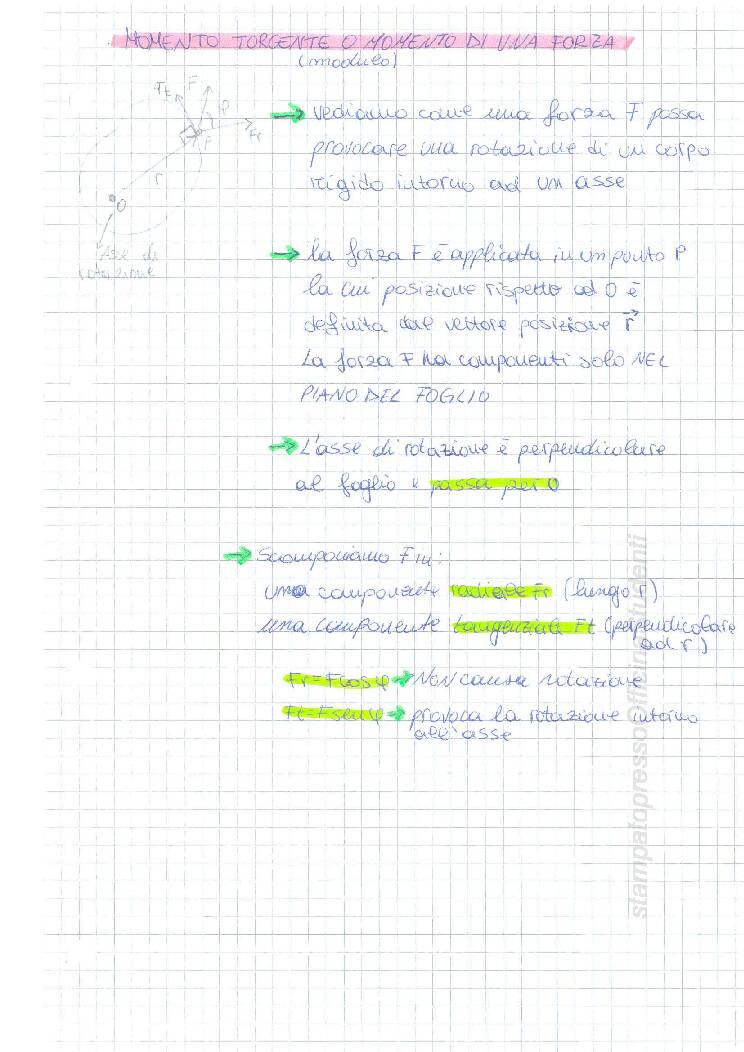 MOMENTO TORCENTE O MOMENTO DI UNA FORZA
(modulo)
Ft F φ
P Fr
r
O
Asse di
rotazione
→ vediamo come una forza F possa
provocare una rotazione di un corpo
rigido intorno ad un asse
→ la forza F è applicata in un punto P
la cui posizione rispetto ad O è
definita dal vettore posizione r⃗
La forza F ha componenti solo NEL
PIANO DEL FOGLIO
→ L'asse di rotazione è perpendicolare
al foglio e passa per O
→ Scomponiamo F in:
una componente radiale Fr (lungo r)
una componente tangenziale Ft (perpendicolare
ad r)
Fr=Fcosφ → NON causa rotazione
Ft=Fsenφ → provoca la rotazione intorno
all'asse
stampatopressoOfficinaStudenti